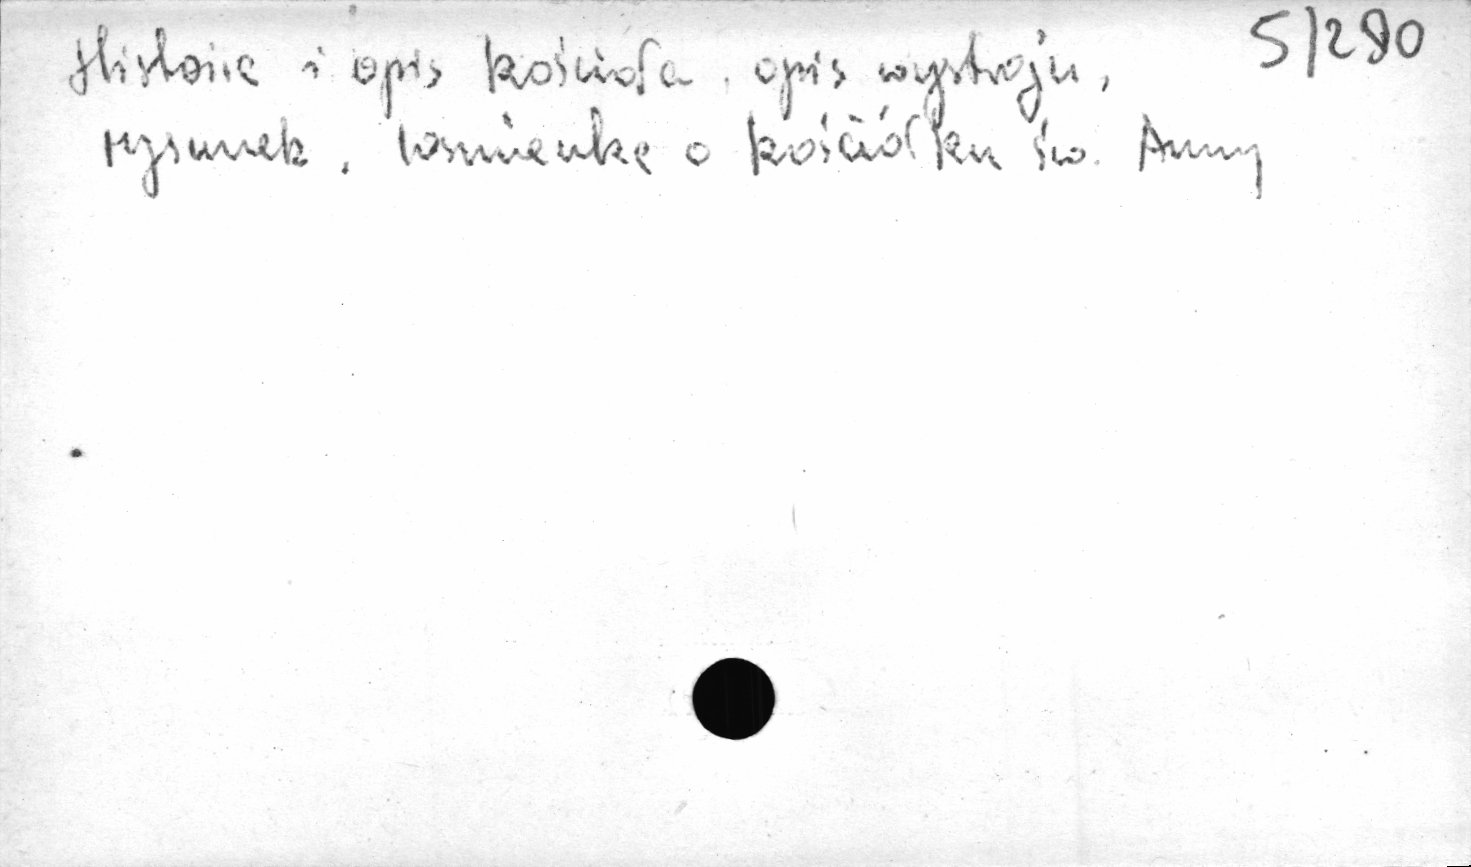 5/280
Historia i opis kościoła, opis wystroju,
rysunek, wzmianka o kościółku św. Anny